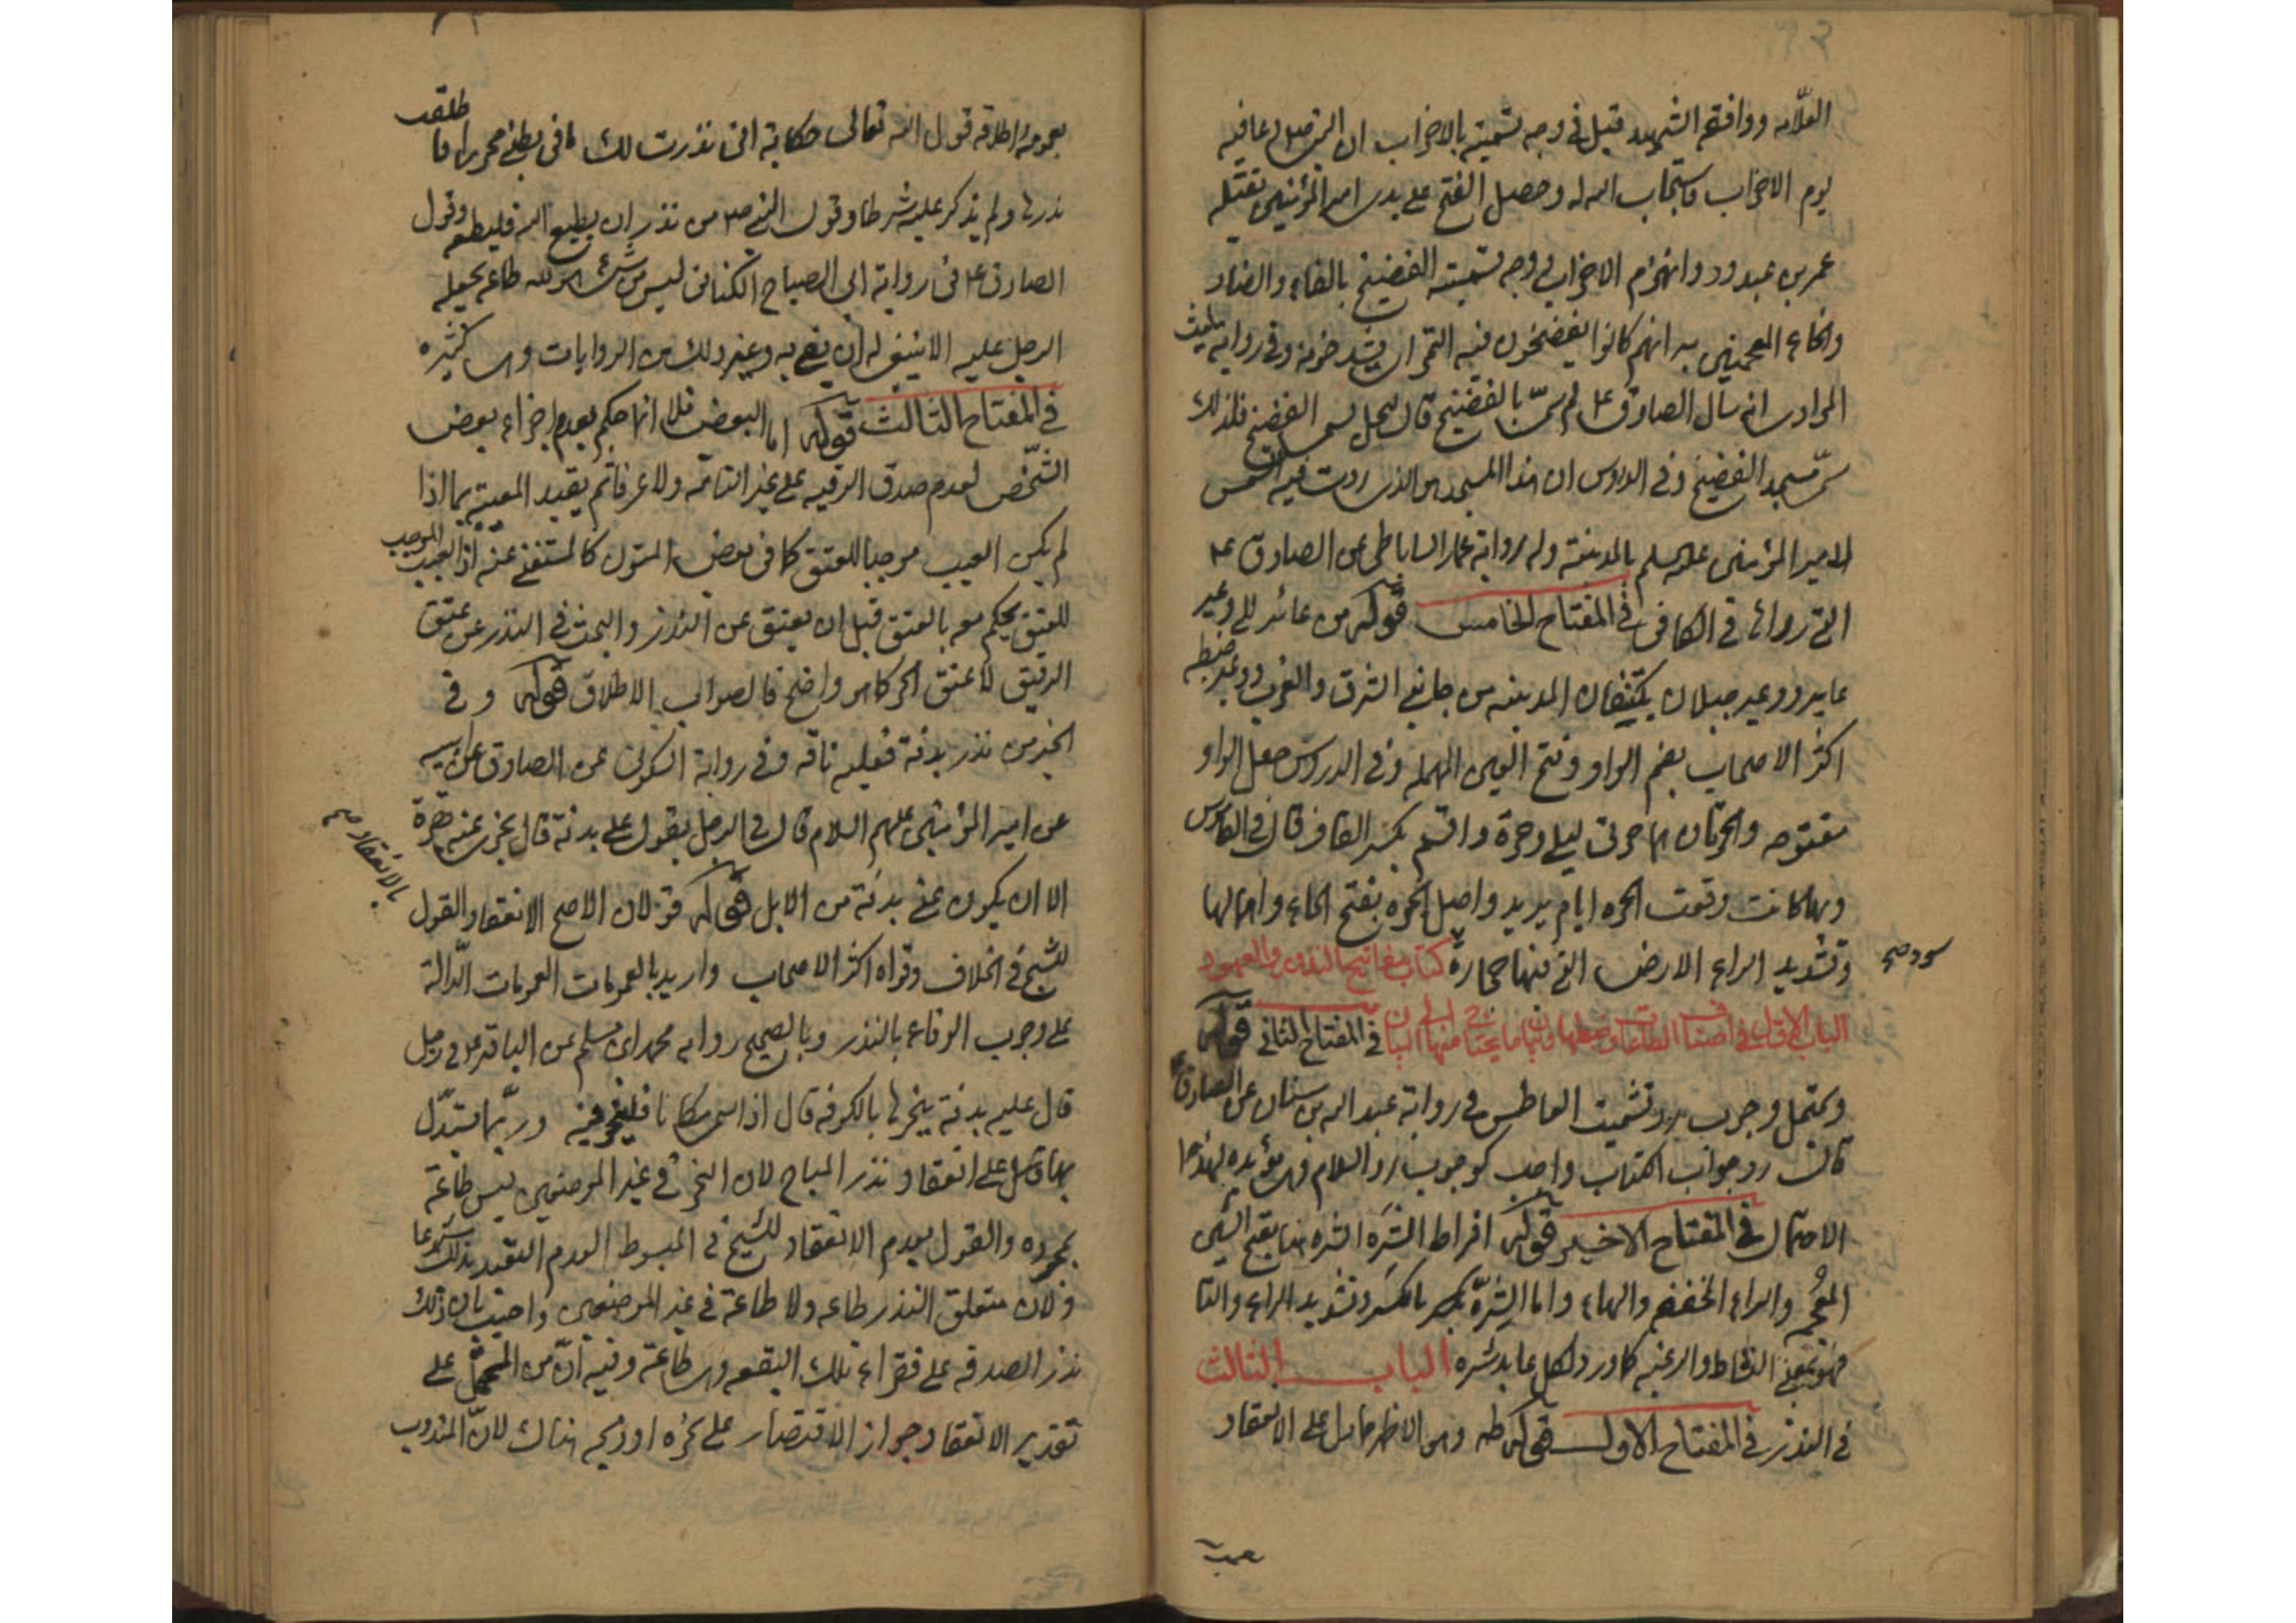 العلامه ووافقه الشهيد قيل في وجه تسميته بالاحزاب ان النبي ص دعا فيه
يوم الاحزاب فاستجاب الله له وحصل الفتح على يدي امير المؤمنين بقتله
عمر بن عبدود وانهزم الاحزاب وفي وجه تسميته الفضيخ بالفاء والضاد
والخاء المعجمتين به انهم كانوا يفضخون فيه التمر اي يشدخونه وفي رواية ليث
المرادي انه سأل الصادق ع لم سمي بالفضيخ قال لنخل يسمى الفضيخ فلذلك
سمي مسجد الفضيخ وفي الدروس ان هذا المسجد هو الذي ردت فيه الشمس
لامير المؤمنين عليه السلم بالمدينة وله رواية عمار الساباطي عن الصادق ع
التي رواها في الكافي في المفتاح الخامس قوله من عائر الى وعير
عاير ووعير جبلان يكتنفان المدينه من جانبي الشرق والغرب ووعير ضبطه
اكثر الاصحاب بضم الواو وفتح العين المهمله وفي الدروس جعل الواو
مفتوحه والحرتان هما حرتي ليلى وحرة واقم بكسر القاف قال في القاموس
وبها كانت وقعت الحره ايام يزيد واصل الحره بفتح الحاء واهمالها
وتشديد الراء الارض التي فيها حجارة كتاب مفاتيح النذور والعهود
سود صح
الباب الاول في اصناف الطاعات في المفتاح الثاني قوله
ويحتمل وجوب رد تشميت العاطس في رواية عبدالله بن سنان عن الصادق ع
قال رد جواب الكتاب واجب كوجوب رد السلام وهي مؤيده لهذا
الاحتمال في المفتاح الاخير قوله افراط الشره الشره هنا بفتح الشين
المعجم والراء المخففه والهاء واما الشرّة بكسر وتشديد الراء والتا
فهو بمعنى النشاط والرغبه كما ورد لكل عابد شره الباب الثالث
في النذر في المفتاح الاول قوله ظه وهو الاظهر مما يدل على الانعقاد
بعمومه واطلاقه قول الله تعالى حكاية اني نذرت لك ما في بطني محررا فاطلقت
نذرها ولم يذكر عليه شرطا وقول النبي ص من نذر ان يطيع الله فليطعه وقول
الصادق ع في رواية ابي الصباح الكناني ليس من شئ هو لله طاعة يجعله
الرجل عليه الا ينبغي له ان يفي به وغير ذلك من الروايات وهي كثيره
في المفتاح الثالث قوله اما البعض فلا انما حكم بعدم اجزاء بعض
الشخص لعدم صدق الرقبه على غير التامه ولا عرفا ثم تقييد المعيبه بما اذا
لم يكن العيب موجبا للعتق كما في بعض المتون كالمستغنى عنه اذ العيب الموجب
للعتق يحكم معه بالعتق قبل ان يعتق عن النذر والبحث في النذر عن عتق
الرقيق لا عتق الحر كما هو واضح فالصواب الاطلاق قوله وفي
الخبر من نذر بدنة فعليه ناقه وفي رواية السكوني عن الصادق عن ابيه
عن امير المؤمنين عليهم السلام قال في الرجل يقول علي بدنة قال يجزي عنه بقرة
الا ان يكون عنى بدنة من الابل قوله قولان الاصح الانعقاد والقول
بالانعقاد صح
للشيخ في الخلاف وقواه اكثر الاصحاب واريد بالعمومات العمومات الدالة
على وجوب الوفاء بالنذر وبالصحيح روايه محمد بن مسلم عن الباقر ع في رجل
قال عليه بدنة ينحرها بالكوفه قال اذا سمى مكانا فلينحر فيه وربما يستدل
بها على انعقاد نذر المباح لان النحر في غير الموضعين ليس طاعة
بمجرده والقول بعدم الانعقاد للشيخ في المبسوط لعدم التعبد بذلك شرعا
ولان متعلق النذر طاعه ولا طاعة في غير الموضعين واجيب بان ذلك
نذر الصدقه على فقراء تلك البقعه وهي طاعة وفيه انه من المحتمل على
تقدير الانعقاد جواز الاقتصار على نحره او ذبحه هناك لان المندوب